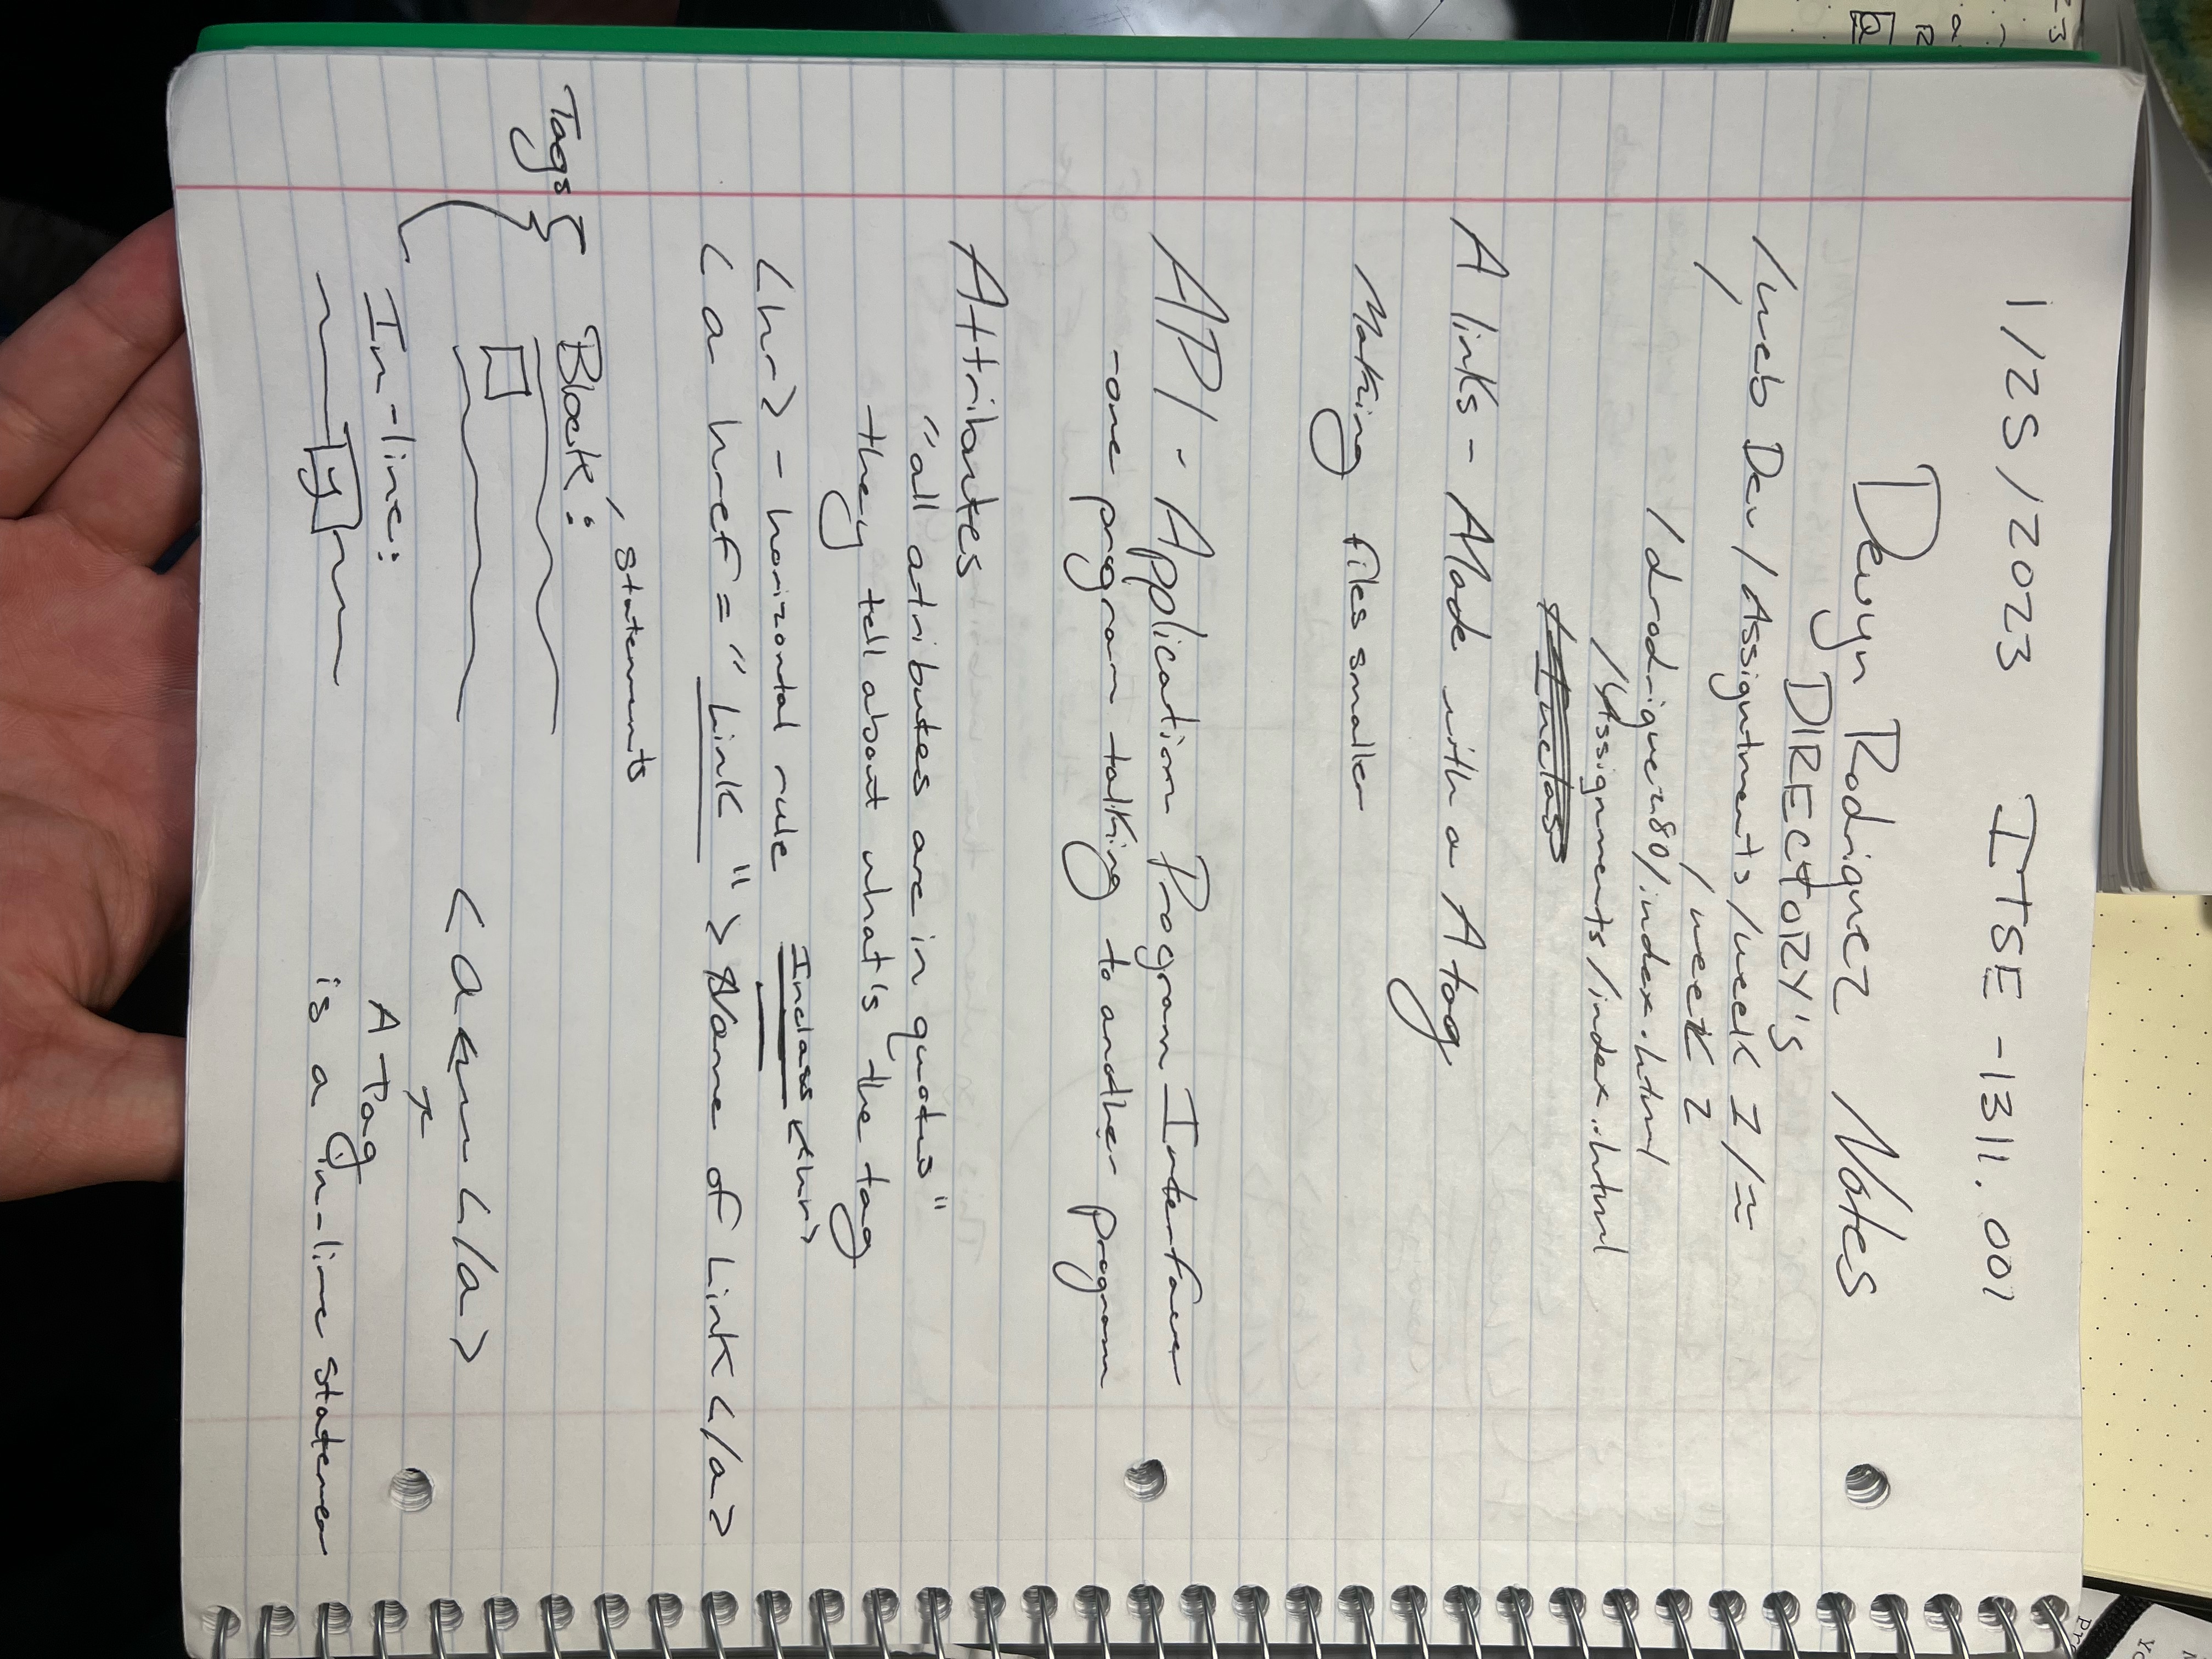 1/25/2023 ITSE-1311.001
Devyn Rodriguez Notes
DIRECTORY's
/web Dev/Assignments/week 1/~
/week 2
/drodriguez80/index.html
/Assignments/index.html
A links - Made with a A tag
Making files smaller
API - Application Program Interface
-one program talking to another program
Attributes
"all atributes are in quotes"
-they tell about what's the tag
<hr> - horizontal rule Inclass <hr>
<a href="Link"> Name of Link</a>
statements
Tags { Block:
<a </a>
In-line:
A Tag
is a in-line statemen